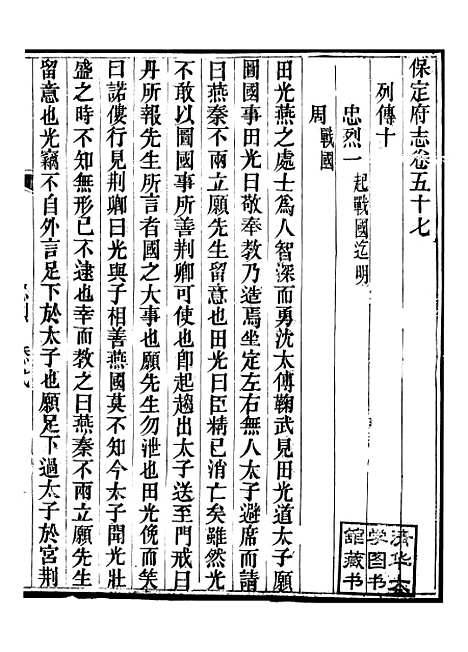 保定府志卷五十七
列傳十
忠烈一 起戰國迄明
周 戰國
田光燕之處士爲人智深而勇沈太傅鞠武見田光道太子願
圖國事田光曰敬奉教乃造焉坐定左右無人太子避席而請
曰燕秦不兩立願先生留意也田光曰臣精已消亡矣雖然光
不敢以圖國事所善荆卿可使也卽起趨出太子送至門戒曰
丹所報先生所言者國之大事也願先生勿泄也田光俛而笑
曰諾僂行見荆卿曰光與子相善燕國莫不知今太子聞光壯
盛之時不知無形已不逮也幸而教之曰燕秦不兩立願先生
留意也光竊不自外言足下於太子也願足下過太子於宮荆
清华大
学图书
館藏书